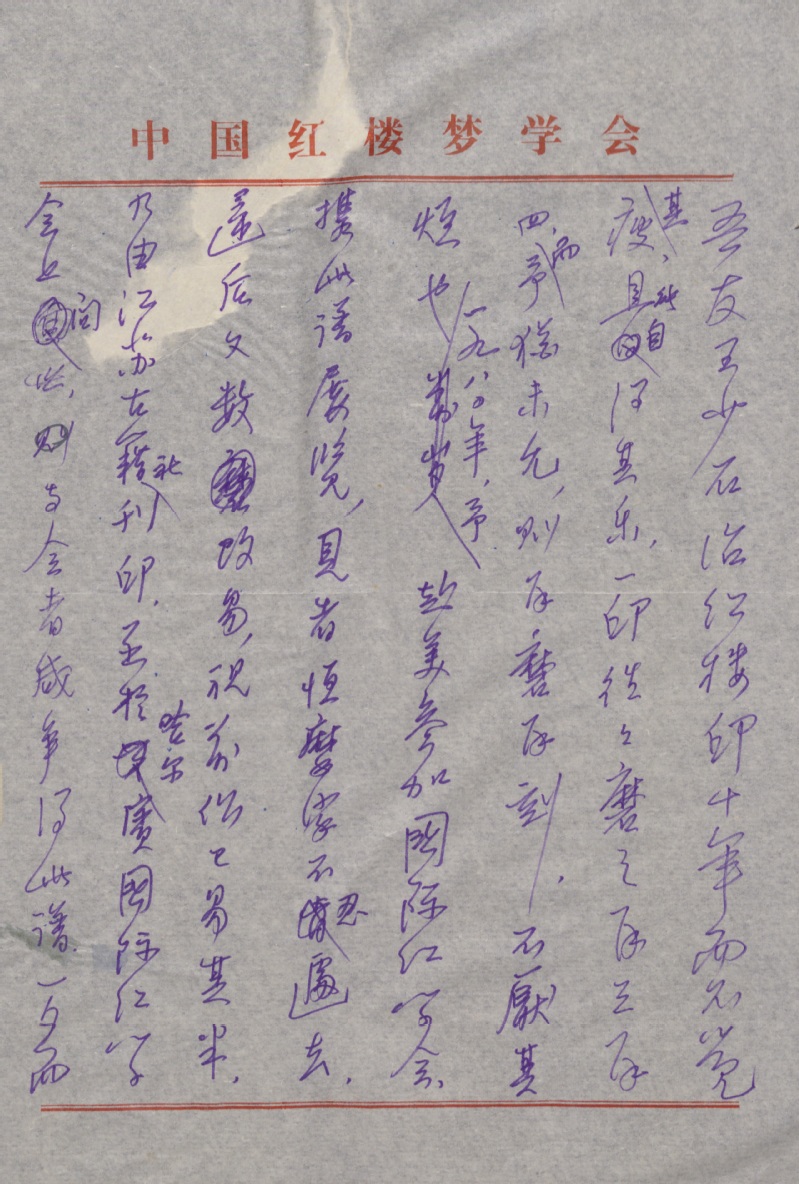 中国红楼梦学会
吾友王少石治红楼印十年而不觉
其疲,且自得其乐,一印往往磨之再三再
四,而予犹未允,则再磨再刻,不厌其
烦也。一九八〇年,予赴美参加国际红学会,
携此谱展览,见者恒摩挲不忍遽去。
还后又数改易,视前似已易其半,
乃由江苏古籍社刊印,至于哈尔宾国际红学
会上问世,则与会者咸争得此谱,一夕而